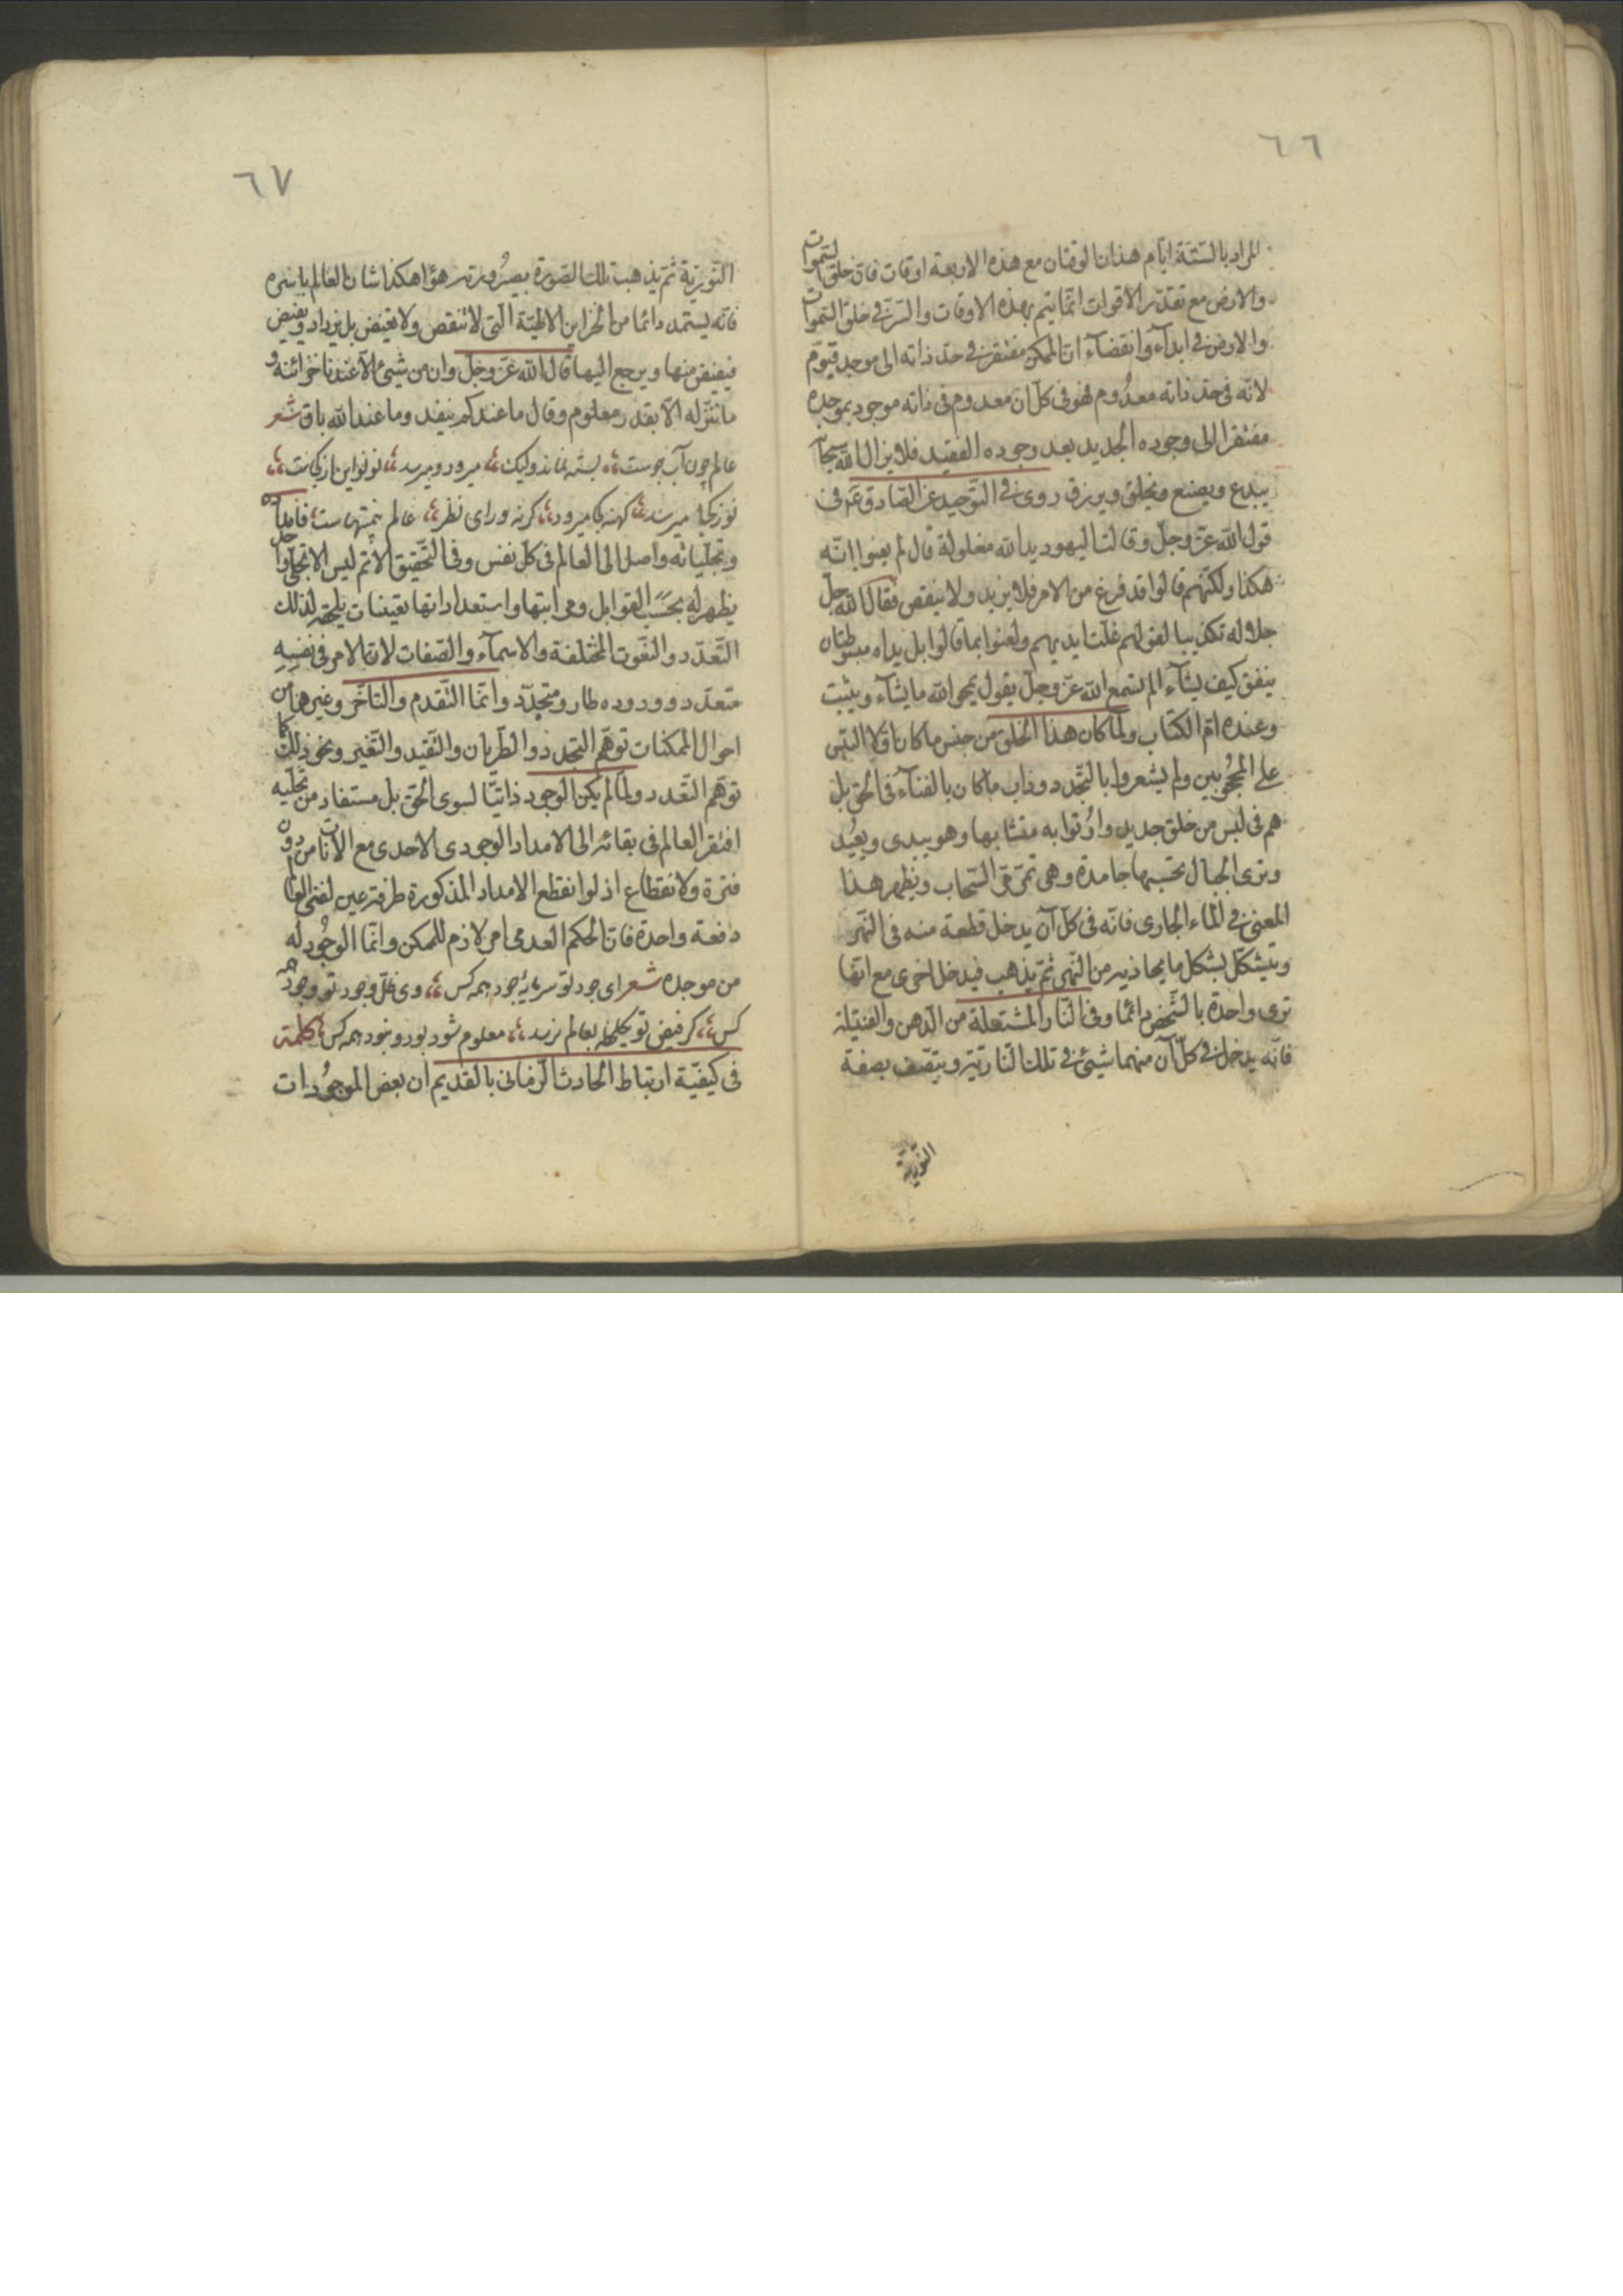 ٦٦
المراد بالستة ايام هذان الوقتان مع هذه الاربعة اوقات فان خلق السموات
والارض مع تقدير الاقوات انما يتم بهذه الاوقات والسر في خلق السموات
والارض في ابداء وانقضاء ان الممكن مفتقر في حد ذاته الى موجد قيوم
لانه في حد ذاته معدوم فهو في كل ان معدوم في ذاته موجود بموجده
مفتقر الى وجوده الجديد بعد وجوده الفقيد فلا يزال الله سبحانه
يبدع ويصنع ويخلق ويرزق روى في التوحيد عن الصادق ع في
قول الله عز وجل وقالت اليهود يد الله مغلولة قال لم يعنوا انه
هكذا ولكنهم قالوا قد فرغ من الامر فلا يزيد ولا ينقص فقال الله جل
جلاله تكذيبا لقولهم غلت ايديهم ولعنوا بما قالوا بل يداه مبسوطتان
ينفق كيف يشآء الم تسمع الله عز وجل يقول يمحو الله ما يشآء ويثبت
وعنده ام الكتاب ولما كان هذا الخلق من جنس ما كان اولا التبس
على المحجوبين ولم يشعروا بالتجدد وذاب ما كان بالفنآء في الحق بل
هم في لبس من خلق جديد واوتوا به متشابها وهو يبدى ويعيد
وترى الجبال تحسبها جامدة وهي تمر مر السحاب ويظهر هذا
المعنى في الماء الجارى فانه في كل آن يدخل قطعة منه في النهر
ويتشكل بشكل ما يحاذيه من النهر ثم يذهب فيدخل اخرى مع انها
ترى واحدة بالشخص دائما وفي النار المشتعلة من الدهن والفتيلة
فانه يدخل في كل آن منهما شيئ في تلك النارية ويتصف بصفة
النورية
٦٧
النورية ثم يذهب تلك الصورة بصيرورته هوا هكذا شان العالم باسره
فانه يستمد دائما من الخزاين الالهية التى لا تنقص ولا تغيض بل يزداد ويفيض
فيفيض منها ويرجع اليها قال الله عز وجل وان من شيئ الا عندنا خزائنه و
ما ننزله الا بقدر معلوم وقال ما عندكم ينفد وما عند الله باق شعر
عالم چون آب جوست بسته نمايد وليك ميرود وميرسد نو نو اين از كجاست
نو ز كجا ميرسد كهنه كجا ميرود كرنه وراى نظر عالم بى منتهاست فامداده
وتجلياته واصل الى العالم في كل نفس وفي التحقيق الاتم ليس الا تجلى واحد
يظهر له بحسب القوابل ومراتبها واستعداداتها تعينات يلحقه لذلك
التعدد والنعوت المختلفة والاسمآء والصفات لا ان الامر في نفسه
متعدد ووروده طار ومتجدد وانما التقدم والتاخر وغيرهما من
احوال الممكنات توهم التجدد والطريان والتقيد والتغير ونحو ذلك كما
توهم التعدد ولما لم يكن الوجود ذاتيا لسوى الحق بل مستفاد من تجليه
افتقر العالم في بقائه الى الامداد الوجودى الاحدى مع الآنات من دون
فترة ولا انقطاع اذ لو انقطع الامداد المذكورة طرفة عين لفنى العالم
دفعة واحدة فان الحكم العدمى امر لازم للممكن وانما الوجود له
من موجده شعر اى جود تو سرمايه جود همه كس وى ظل وجود تو وجود همه
كس كر فيض تو يكلحظه بعالم نرسد معلوم شود بود و نبود همه كس كلمة
في كيفية ارتباط الحادث الزمانى بالقديم ان بعض الموجودات